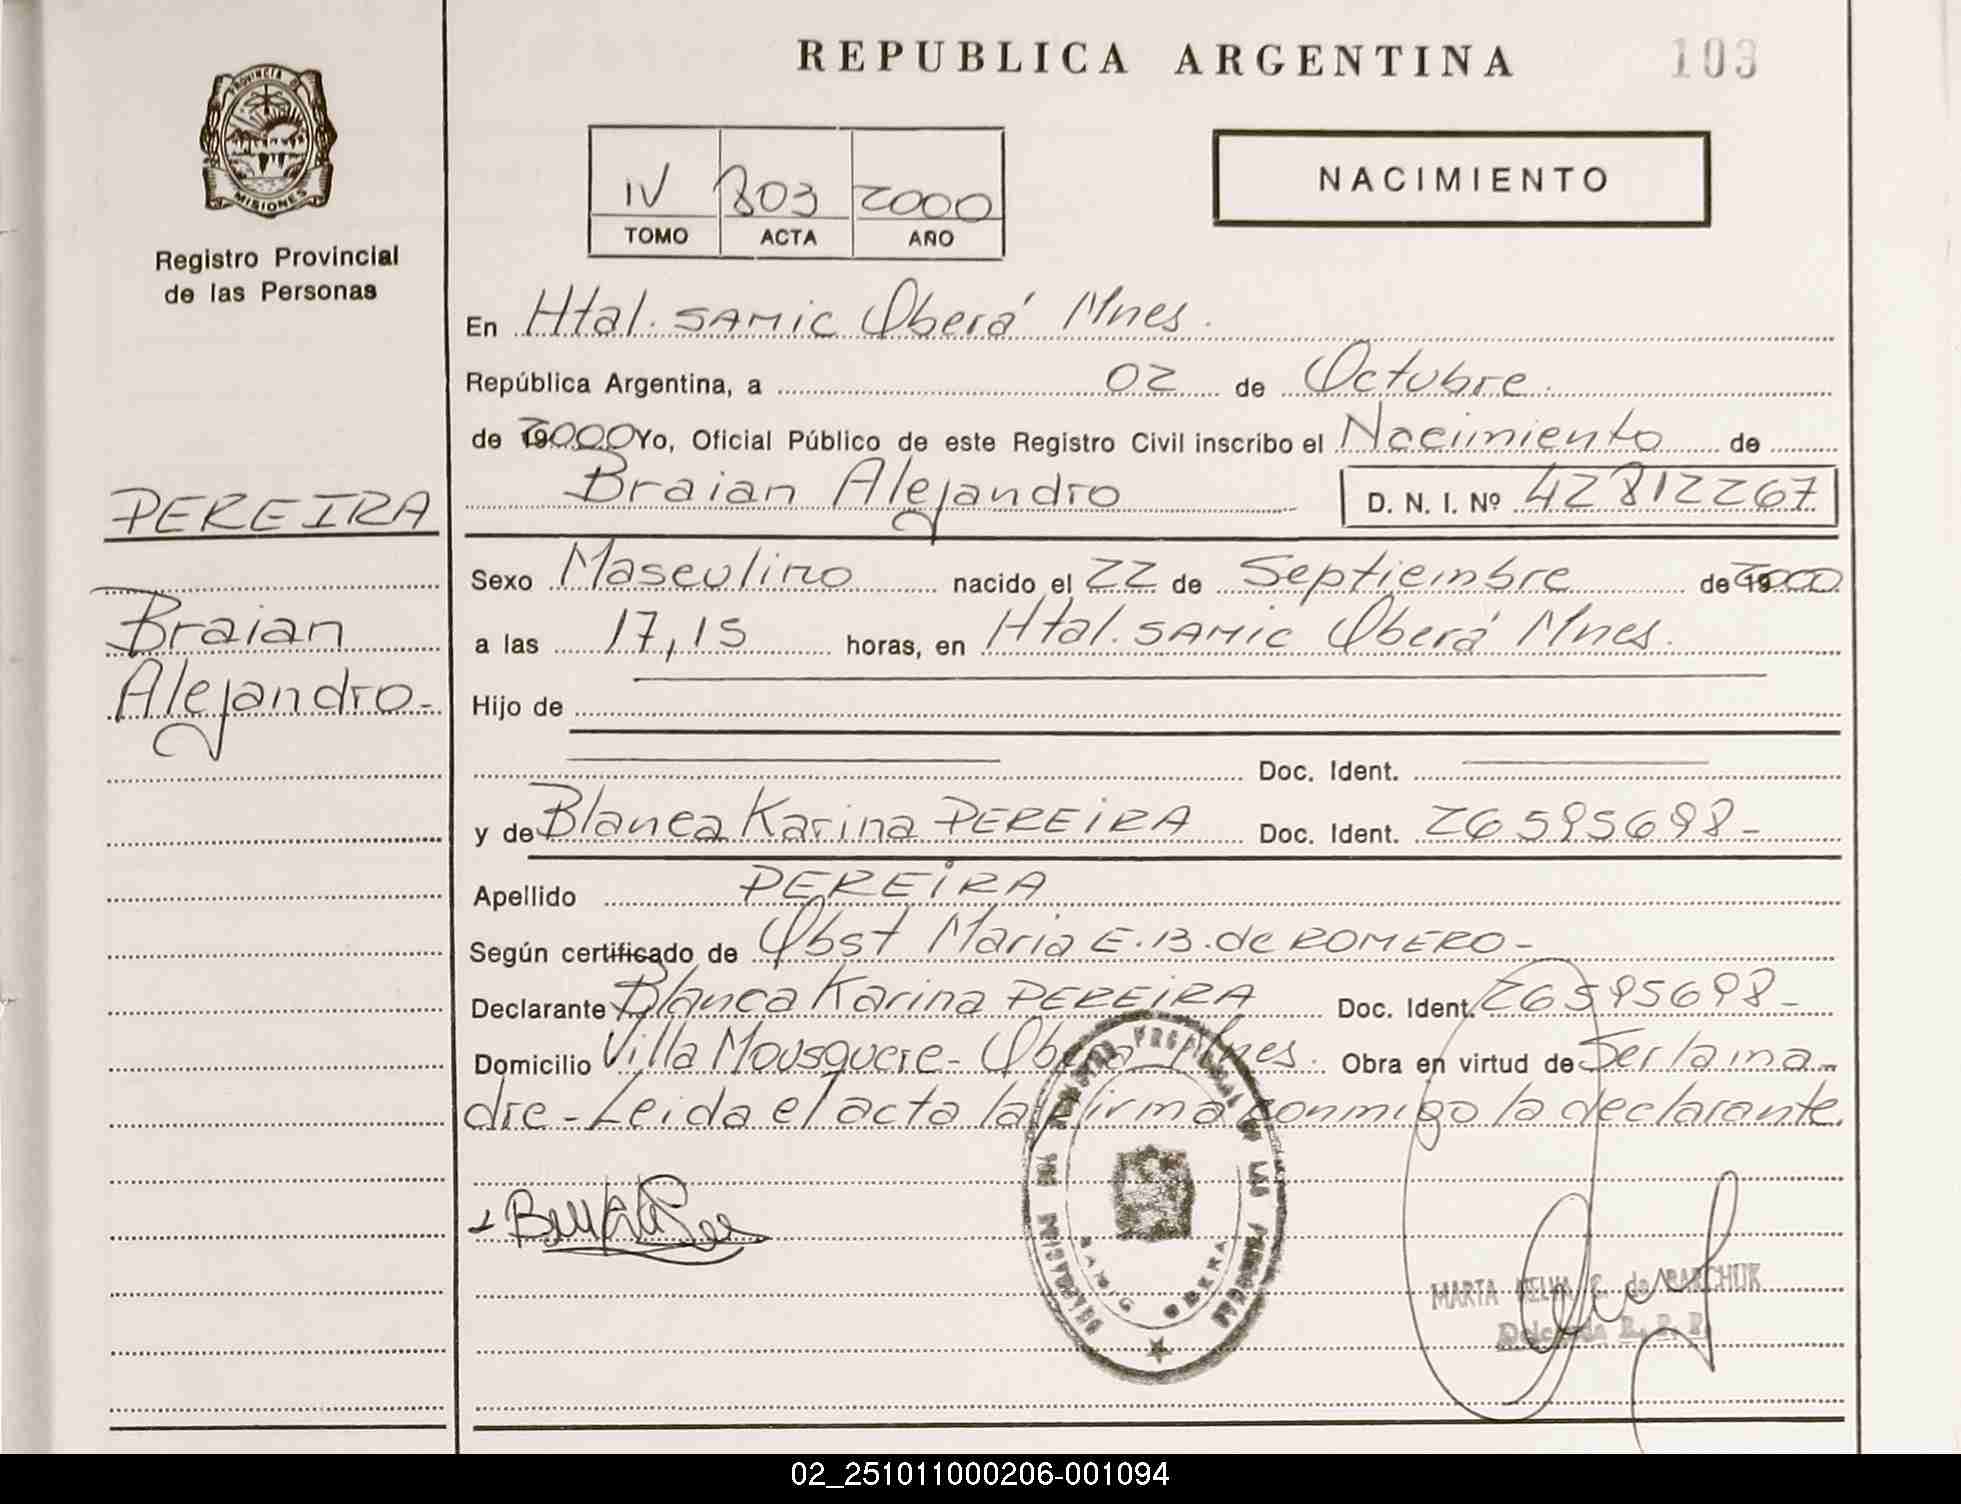 REPUBLICA ARGENTINA 103
PROVINCIA DE
MISIONES
Registro Provincial
de las Personas
IV 803 2000
TOMO ACTA AÑO
NACIMIENTO
En Htal. SAMIC Oberá Mnes.
República Argentina, a 02 de Octubre.
de 2000 Yo, Oficial Público de este Registro Civil inscribo el Nacimiento de
Braian Alejandro D. N. I. Nº 42812267
PEREIRA
Braian
Alejandro-
Sexo Masculino nacido el 22 de Septiembre de 2000
a las 17,15 horas, en Htal. SAMIC Oberá Mnes.
Hijo de
Doc. Ident.
y de Blanca Karina PEREIRA Doc. Ident. 26595698-
Apellido PEREIRA
Según certificado de Obst Maria E.B. de ROMERO-
Declarante Blanca Karina PEREIRA Doc. Ident. 26595698-
Domicilio Villa Mousquere- Oberá Mnes. Obra en virtud de Ser la ma-
dre- Leida el acta la firma conmigo la declarante.
SAMIC OBERA
MARTA E. de
Delegada R. P. P.
02_251011000206-001094